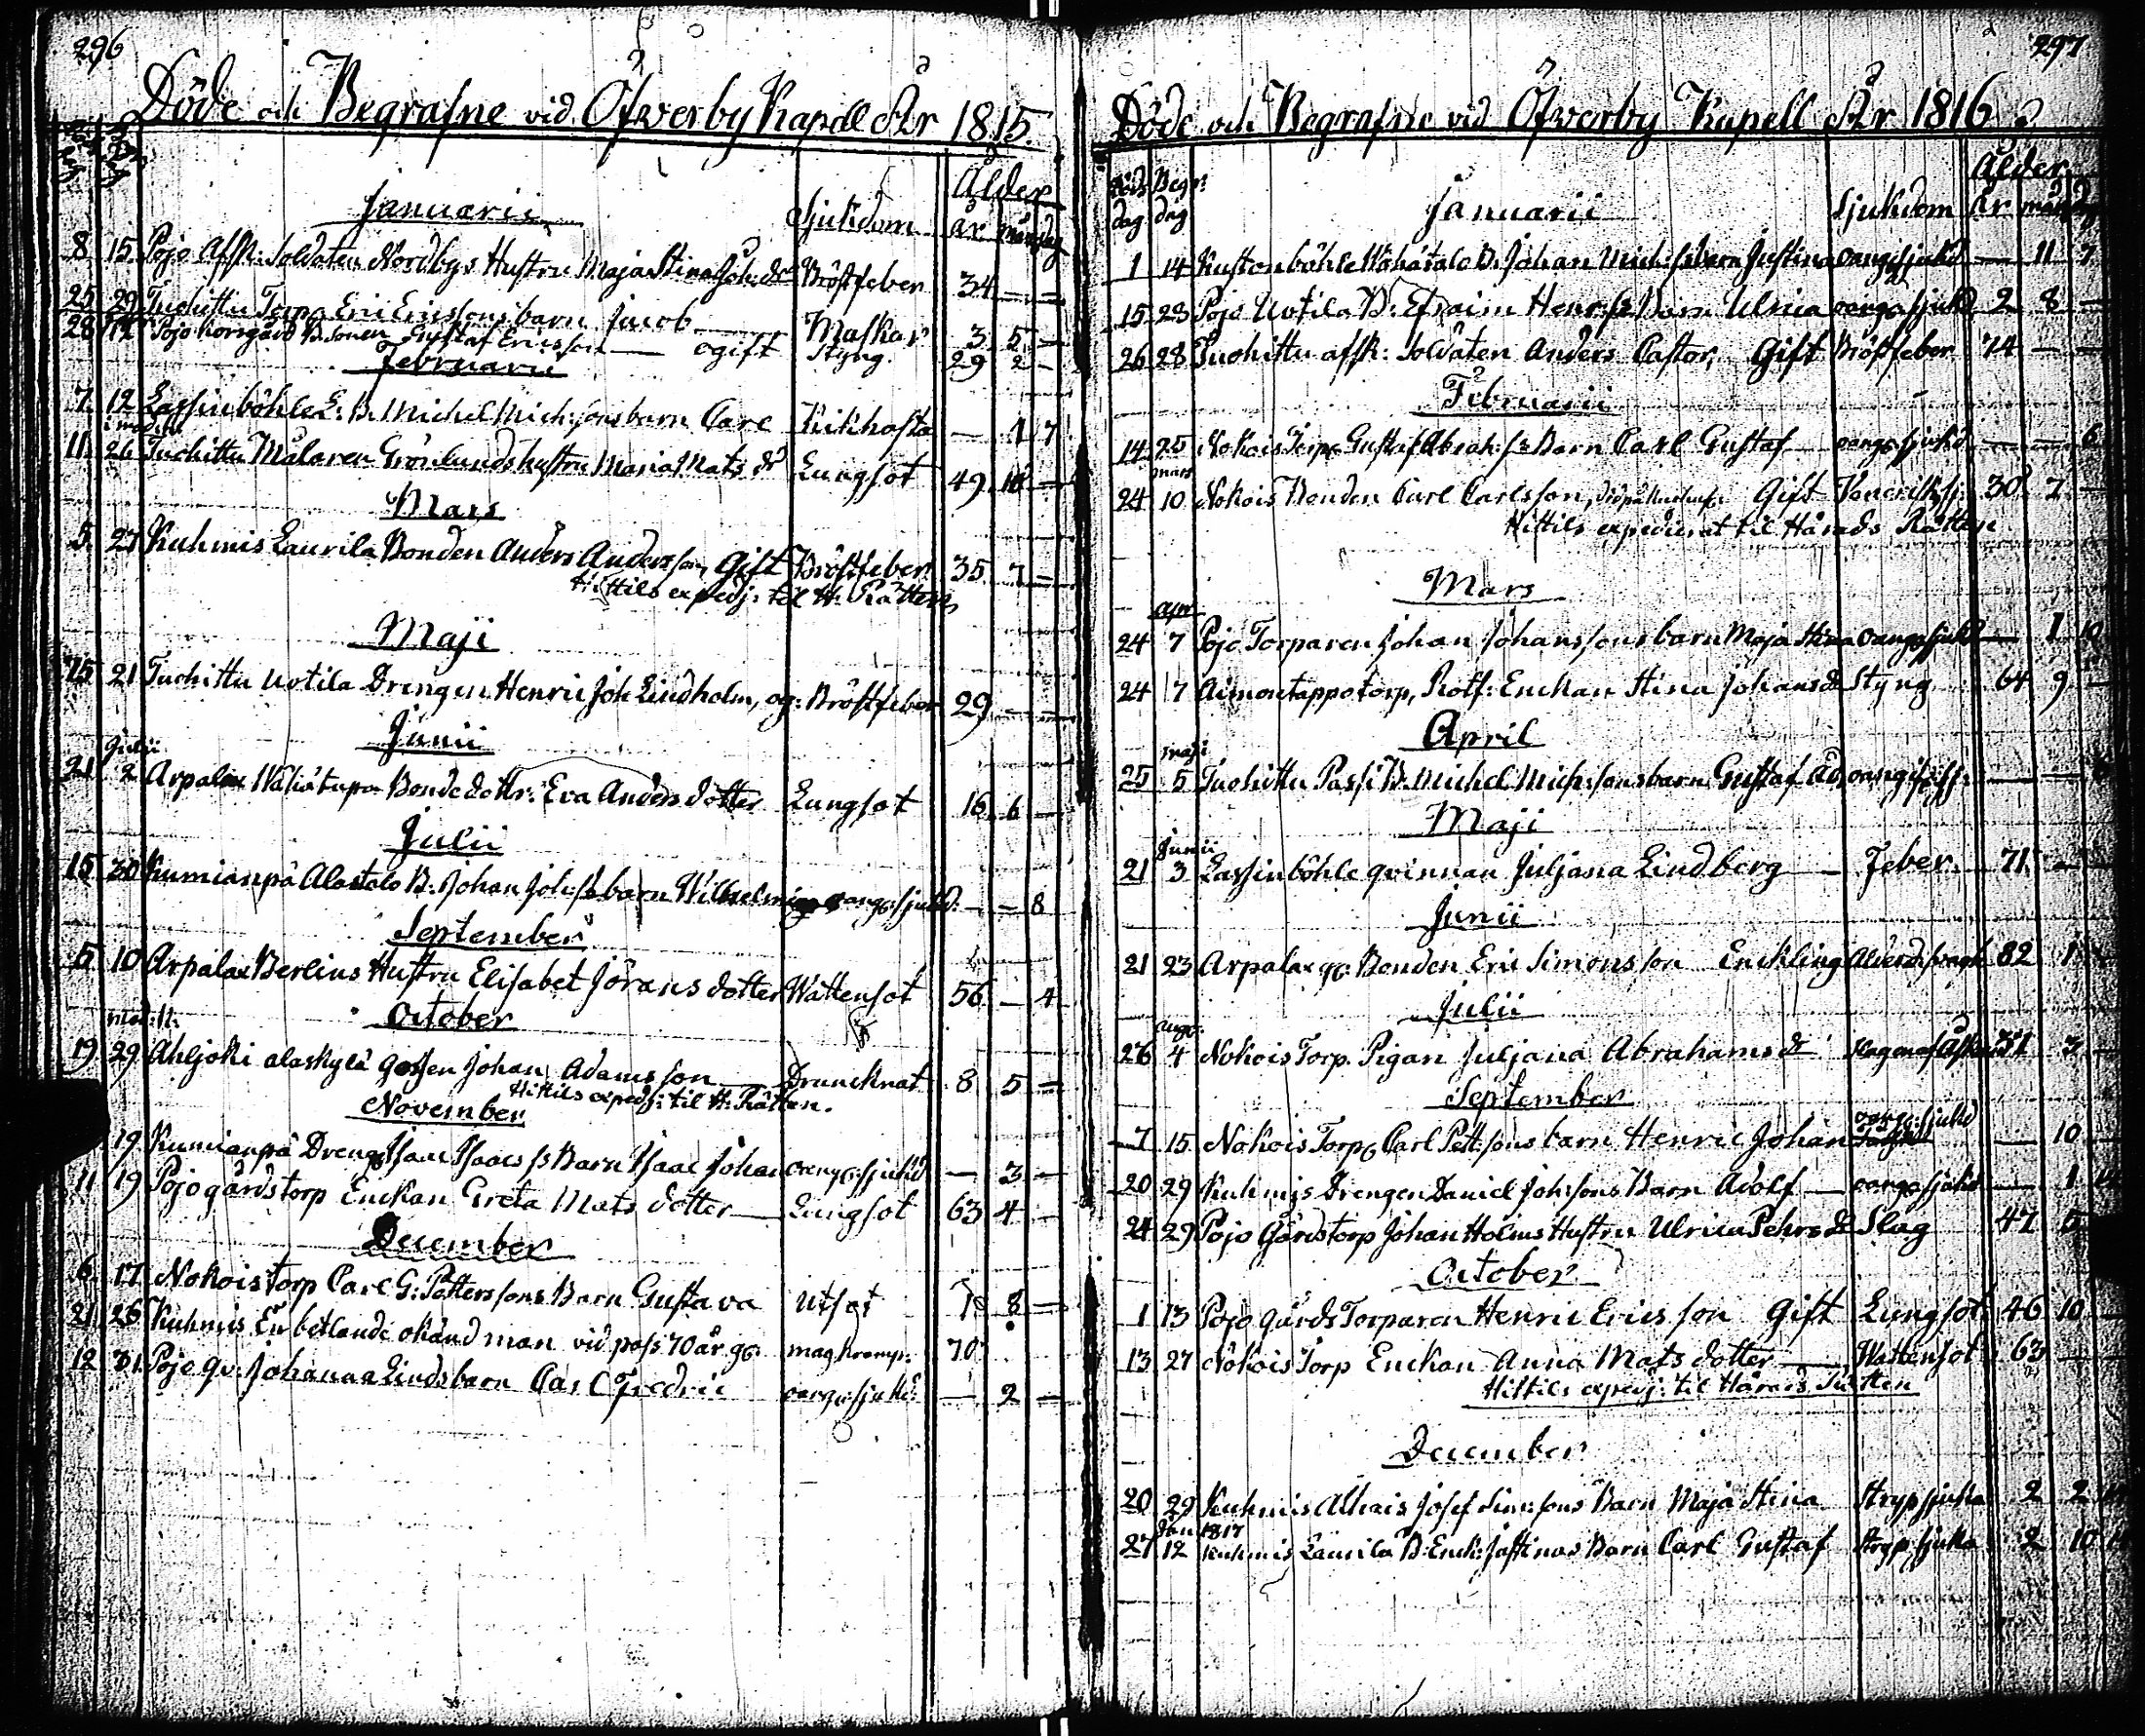 296
Döde och Begrafne vid Öfverby Kapell År 1815.
Ålder
Januarii Sjukdom år mån dag
8 15 Pojo Afsk: Soldaten Nordbys Hustru Maja Stina Joh: dr Bröstfeber 34 — —
25 29 Tuohittu Torp Eric Ericssons barn Jacob — Maskar 3 5 —
28 12 Pojo Korsgård B. Sonen Gustaf Ericsson — ogift Styng. 29 2 —
Februarii
7. 12 Lassinböhle B. Michel Mich:sons barn Carl Kikhosta — 1 7
11. 26 Tuohittu Målaren Grönlunds hustru Maria Mats dr Lungsot 49 10 —
Mars
5. 27 Kuhmis Laurila Bonden Anders Andersson, Gift Bröstfeber 35 7 —
Hittils expedj: til H. Rätten
Maji
15 21 Tuohittu Uotila Drengen Henric Joh Lindholm, og: Bröstfeber 29 — —
Junii
Julii
21 2 Arpalax Bondedottr: Eva Andersdotter Lungsot 16 6 —
Julii
15 30 Kumianpä Alastalo B: Johan Joh:s barn Wilhelmina oang: sjukd. — — 8
September
5 10 Arpalax Berlins Hustru Elisabet Jörans dotter Wattensot 56 — 4
October
19 29 Ahljoki alaskylä gossen Johan Adamsson — Druncknat 8 5 —
Hittils expedj: til H. Rätten.
November
19 Kumianpä Dreng Isaac Isaacs Barn Isaac Johan oang: sjukd — 3 —
11 19 Pojogårds torp Enckan Greta Mats dotter — Lungsot 63 4 —
December
6. 17 Nokois torp Carl G: Pettersons Barn Gustava Utsot 1 8 —
21 26 Kuhmis En betlande okänd man vid pass 70 år g: magkramp: 70
12 31. Pojo qv. Johanna Linds barn Carl Fredric oang: sjukd. — 2 —
297
Döde och Begrafne vid Öfverby Kapell År 1816
Ålder
Döds dag Begr: dag Januarii Sjukdom År mån
1 14 Kustonböhle Wähätalo B. Johan Mich:s barn Justina oang sjukd — 11 7
15 23 Pojo Uotila B: Efraim Henr:s Barn Ulrica oang: sjukd 2 8 —
26 28 Tuohittu afsk: Soldaten Anders Castor, Gift Bröstfeber 74 — —
Februarii
14 25 Nokois Torp Gustaf Abrah: s Barn Carl Gustaf — oang: sjukd — — 6
mars
24 10 Nokois Bonden Carl Carlsson, Gift Venerisk sj: 30 7 —
Hittils expedierat til Härads Rätten
Mars
apr
24 7 Pojo Torparen Johan Johanssons barn Maja Stina oang: sjukd — 1 10
24 7 Aimontappo torp, Rotf: Enckan Stina Johans dr Styng 64 9 —
April
maji
25 5 Tuohittu Passi B. Michel Mich:sons barn Gustaf Ad, oang: sj:
Maji
Junii
21 3 Lassinböhle qvinnan Juljana Lindberg — Feber 71 —
Junii
21 23 Arpalax g: Bonden Eric Simonsson Enckling Ålderd. svagh 82 1
Julii
aug:
26 4 Nokois Torp. Pigan Juljana Abrahams dr Slagen af Åskan 31 3 —
September
7 15 Nokois Torp Carl Pett:sons barn Henric Johan oang: sjukd — 10 —
20 29 Kuhmis Drengen Daniel Joh:sons Barn Adolf — oang: sjukd — 1
24 29 Pojo Gårds torp Johan Holms Hustru Ulrica Pehrs dr Slag 47 5
October
1 13 Pojo gårds Torparen Henric Ericsson Gift Lungsot 46 10 —
13 27 Nokois Torp Enckan Anna Mats dotter — Wattensot 63 —
Hittils expedj: til Härads Rätten
December
20 29 Kuhmis Alhais Josef Sim:sons Barn Maja Stina Strypsjuka 2 2
Jan 1817
27 12 Kuhmis Laurila B: Enck: Justinas Barn Carl Gustaf Strypsjuka 2 10